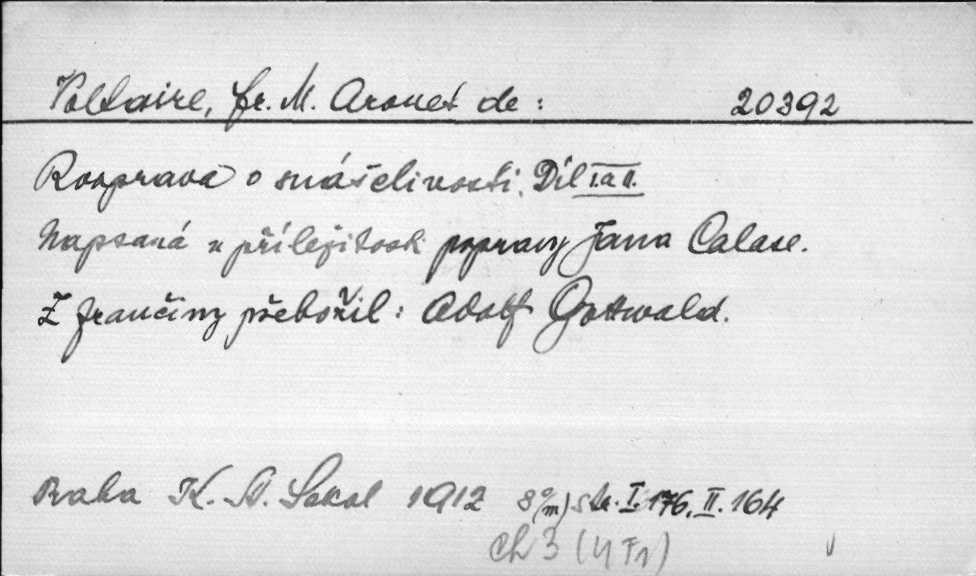 Voltaire, Fr. M. Arouet de : 20392
Rozprava o snášelivosti. Díl I. a II.
Napsaná u příležitosti popravy Jana Calase.
Z frančiny přeložil : Adolf Gottwald.
Praha K. St. Sokol 1912 8° m) str. I. 176, II. 164
ch 3 (4 F1)